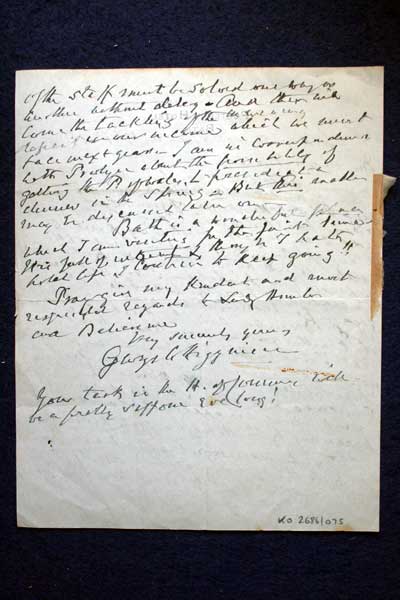 of the staff must be solved one way or
another without delay. And then will
come the tackling of the
our income which we must
face next year. I am in correspondence
with about the possibility of
getting the to
dinner in the Spring. But this matter
may be discussed later on.
Bath is a wonderful
which I am visiting for the first time.
It is full of interest & though I hate
hotel life I contrive to keep going!!
Pray give my kindest and most
respectful regards to Lady
and Believe me
Very sincerely yours
George
Your task in the H. of will
be a pretty stiff one ere long!
KO 2686/075